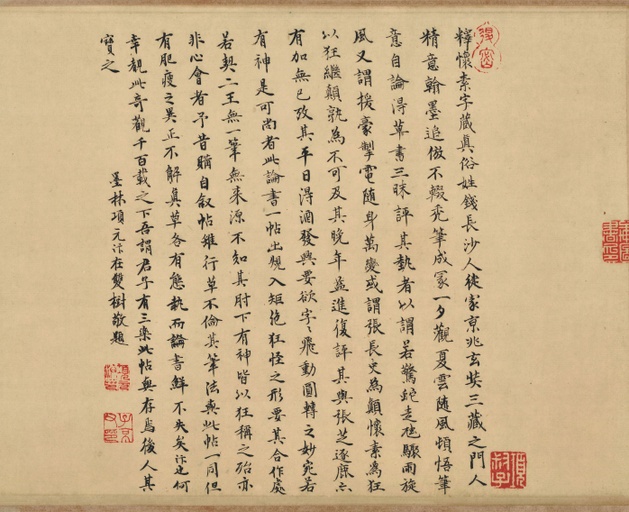 釋懷素字藏真俗姓錢長沙人徙家京兆玄奘三藏之門人
精意翰墨追倣不輟禿筆成冢一夕觀夏雲隨風頓悟筆
意自論得草書三昧評其勢者以謂若驚蛇走虺驟雨旋
風又謂援豪掣電隨身萬變或謂張長史為顛懷素為狂
以狂繼顛孰為不可及其晚年益進復評其與張芝逐鹿六
有加無已攷其平日得酒發興要欲字〻飛動圓轉之妙宛若
有神是可尚者此論書一帖出規入矩絕狂怪之形要其合作處
若契二王無一筆無來源不知其肘下有神皆以狂稱之殆亦
非心會者予昔購自叙帖雖行草不倫其筆法與此帖一同但
有肥瘦之異正不解真草各有態勢而論書鮮不失矣汴何
幸觀此奇觀千百載之下吾謂君子有三樂此帖與存焉後人其
寶之
墨林項元汴在雙樹敬題